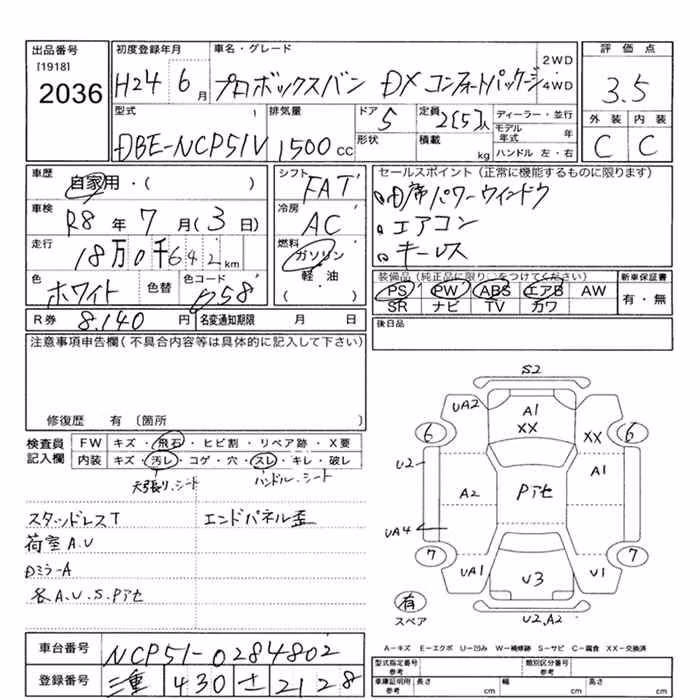 出品番号
[1918]
2036
初度登録年月
H24 6月
車名・グレード
プロボックスバン DXコンフォートパッケージ
2WD
4WD
評価点
3.5
外装 内装
C C
型式
DBE-NCP51V
排気量
1500cc
ドア
5
形状
定員
2[5]人
積載
kg
ディーラー・並行
モデル年式 年
ハンドル 左・右
車歴
自家用・( )
車検
R8年7月(3日)
走行
18万0千642km
色
ホワイト
色替
色コード
058
シフト
FAT
冷房
AC
燃料
ガソリン
軽・油
( )
セールスポイント(正常に機能するものに限ります)
・D席パワーウインドウ
・エアコン
・キーレス
装備品(純正品に限り○をつけてください)
PS PW ABS エアB AW
SR ナビ TV カワ
新車保証書
有・無
R券 8,140円
名変通知期限 月 日
後日品
注意事項申告欄(不具合内容等は具体的に記入して下さい)
修復歴 有〔箇所
検査員記入欄
FW キズ・飛石・ヒビ割・リペア跡・X要
内装 キズ・汚レ・コゲ・穴・スレ・キレ・破レ
天張り、シート
ハンドル、シート
スタッドレスT
エンドパネル歪
荷室A.U
DミラーA
各A.U.S.Pアセ
S2
UA2
A1
XX
XX
6
6
U2
A1
A2
Pアセ
UA4
7
7
UA1
U3
U1
有
スペア
U2.A2
A-キズ E-エクボ U-凹み W-補修跡 S-サビ C-腐食 XX-交換済
車台番号
NCP51-0284802
登録番号
三重 430 セ 2128
型式指定番号
参考
類別区分番号
参考
車庫証明用
参考
長さ cm
幅 cm
高さ cm